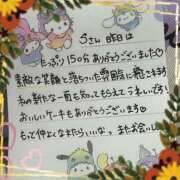 Sさん 昨日は
たっぷり150分ありがとうございました♡
素敵な笑顔と落ちついた雰囲気に癒されます
私の新たな一面も知ってもらえてうれしいです!
おいしいケーキもありがとうございます♡
もっと仲よくなれたらいいな またお会いし